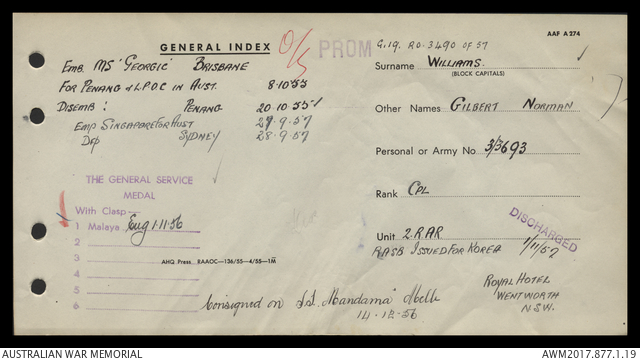 AAF A 274
GENERAL INDEX
O/S
PROM
G.19. RO. 3490 OF 57
EMB. MS 'GEORGIC' BRISBANE
FOR PENANG & L.P.O.C IN AUST. 8.10.55
DISEMB: PENANG 20.10.55
EMP SINGAPORE FOR AUST 27.9.57
DEP SYDNEY 28.9.57
Surname WILLIAMS.
(BLOCK CAPITALS)
Other Names GILBERT NORMAN
Personal or Army No. 3/3693
Rank CPL
Unit 2.RAR
RASB ISSUED FOR KOREA
DISCHARGED
1/11/57
ROYAL HOTEL
WENTWORTH
N.S.W.
THE GENERAL SERVICE
MEDAL
With Clasp—
1 Malaya. Eng 1.11.56
2
3
4
5
6
AHQ Press RAAOC—136/55—4/55—1M
Consigned on S.S. "Mandama"
14.12.56
AUSTRALIAN WAR MEMORIAL
AWM2017.877.1.19